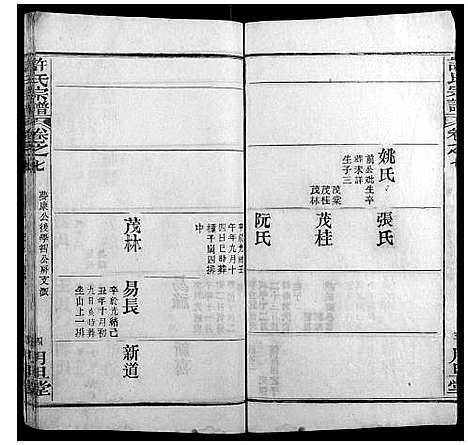 許氏宗譜
卷之七
姚氏
前公妣生卒
葬未詳
生子三
茂棠
茂桂
茂林
張氏
茂桂
阮氏
午年九月十
四日巳時葬
樟子崗四排
中
茂林
易長
辛於光緒己
丑年十月初
九日亥時葬
坐山上一排
新道
許氏宗譜
卷之七
夢康公後學智公房文獻
四
月旦堂